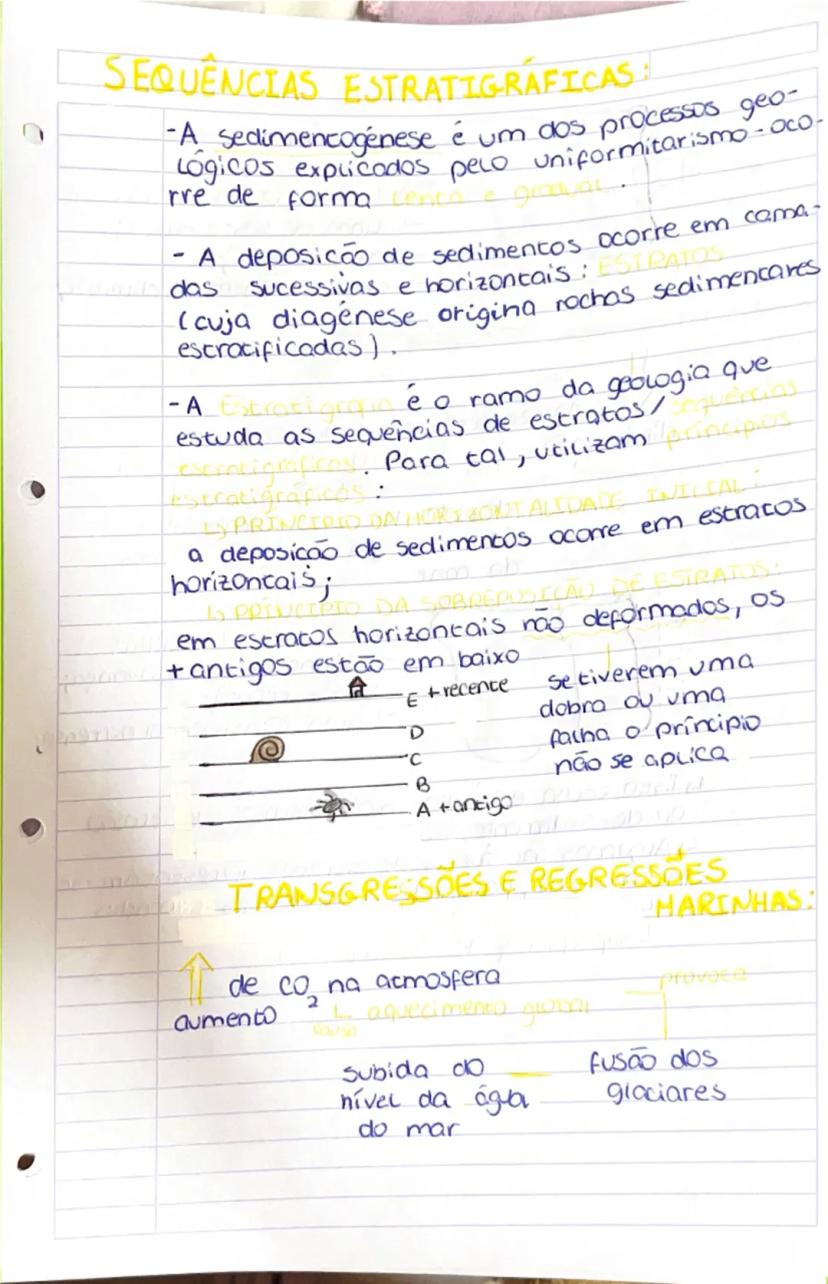 SEQUÊNCIAS ESTRATIGRÁFICAS:
- A sedimentogénese é um dos processos geo-
lógicos explicados pelo uniformitarismo - oco-
rre de forma lenta e gradual.
- A deposicão de sedimentos ocorre em cama-
das sucessivas e horizontais: ESTRATOS
(cuja diagénese origina rochas sedimentares
estratificadas).
- A Estratigrafia é o ramo da geologia que
estuda as sequências de estratos/sequências
estratigráficas. Para tal, utilizam princípios
estratigráficos:
↳ PRINCÍPIO DA HORIZONTALIDADE INICIAL:
a deposicão de sedimentos ocorre em estratos
horizontais;
↳ PRINCÍPIO DA SOBREPOSICÃO DE ESTRATOS:
em estratos horizontais não deformados, os
+ antigos estão em baixo
E + recente
D
C
B
A + antigo
se tiverem uma
dobra ou uma
falha o príncipio
não se aplica
TRANSGRESSÕES E REGRESSÕES
MARINHAS:
⇑ de CO2 na atmosfera
aumento
↳ aquecimento global
causa
provoca
fusão dos
glaciares
subida do
nível da água
do mar